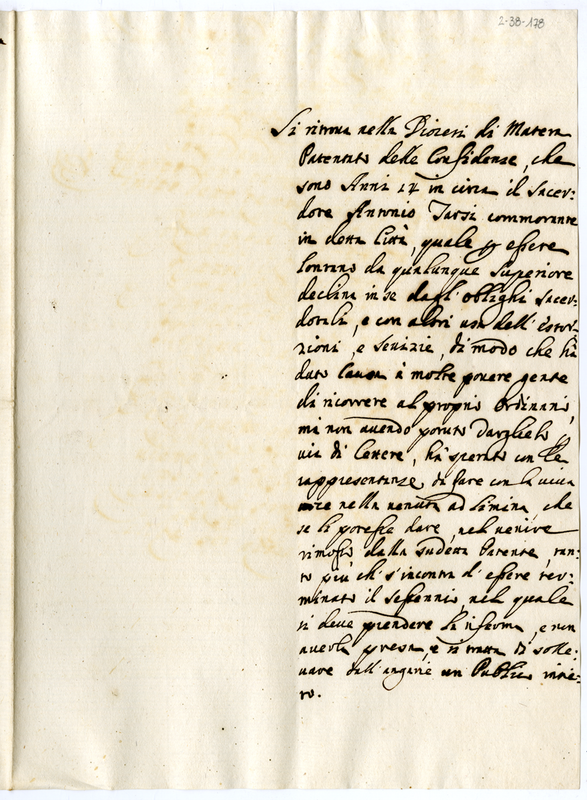 2-38-178
Si ritrova nella Diocesi di Matera
Patentato delle Confidenze, che
sono Anni 14 in circa il Sacer:
dote Antonio Tarsi commorante
in detta Città, quale p essere
lontano da qualunque Superiore
declina in se dagl' oblighi Sacer:
dotali, e con altri usa dell' Estor:
zioni, e Sevizie, di modo che hà
dato Causa à molte povere gente
di ricorrere al proprio Ordinario,
mà non avendo potuto darglielo
via di Lettere, hà sperato con le
rappresentanze di fare con la viva
voce nella venuta ad Limina, che
se li potesse dare, nel venire
rimosso dalla sudetta Patente, tan:
to più ch' s'incontra d' essere ter:
minato il Sessennio, nel quale
si deve prendere la riferma, e non
averla presa, e si tratta di solle:
vare dall' angarie un Publico inte:
ro.